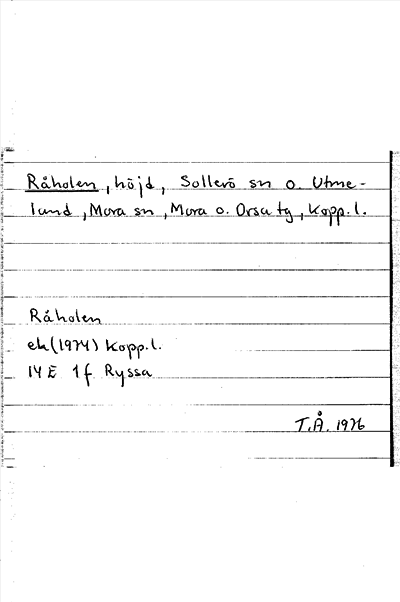 Råholen, höjd, Sollerö sn o. Utme-
land, Mora sn, Mora o. Orsa tg, Kopp. l.
Råholen
ek (1974) Kopp. l.
14 E 1f Ryssa
T.Å. 1976